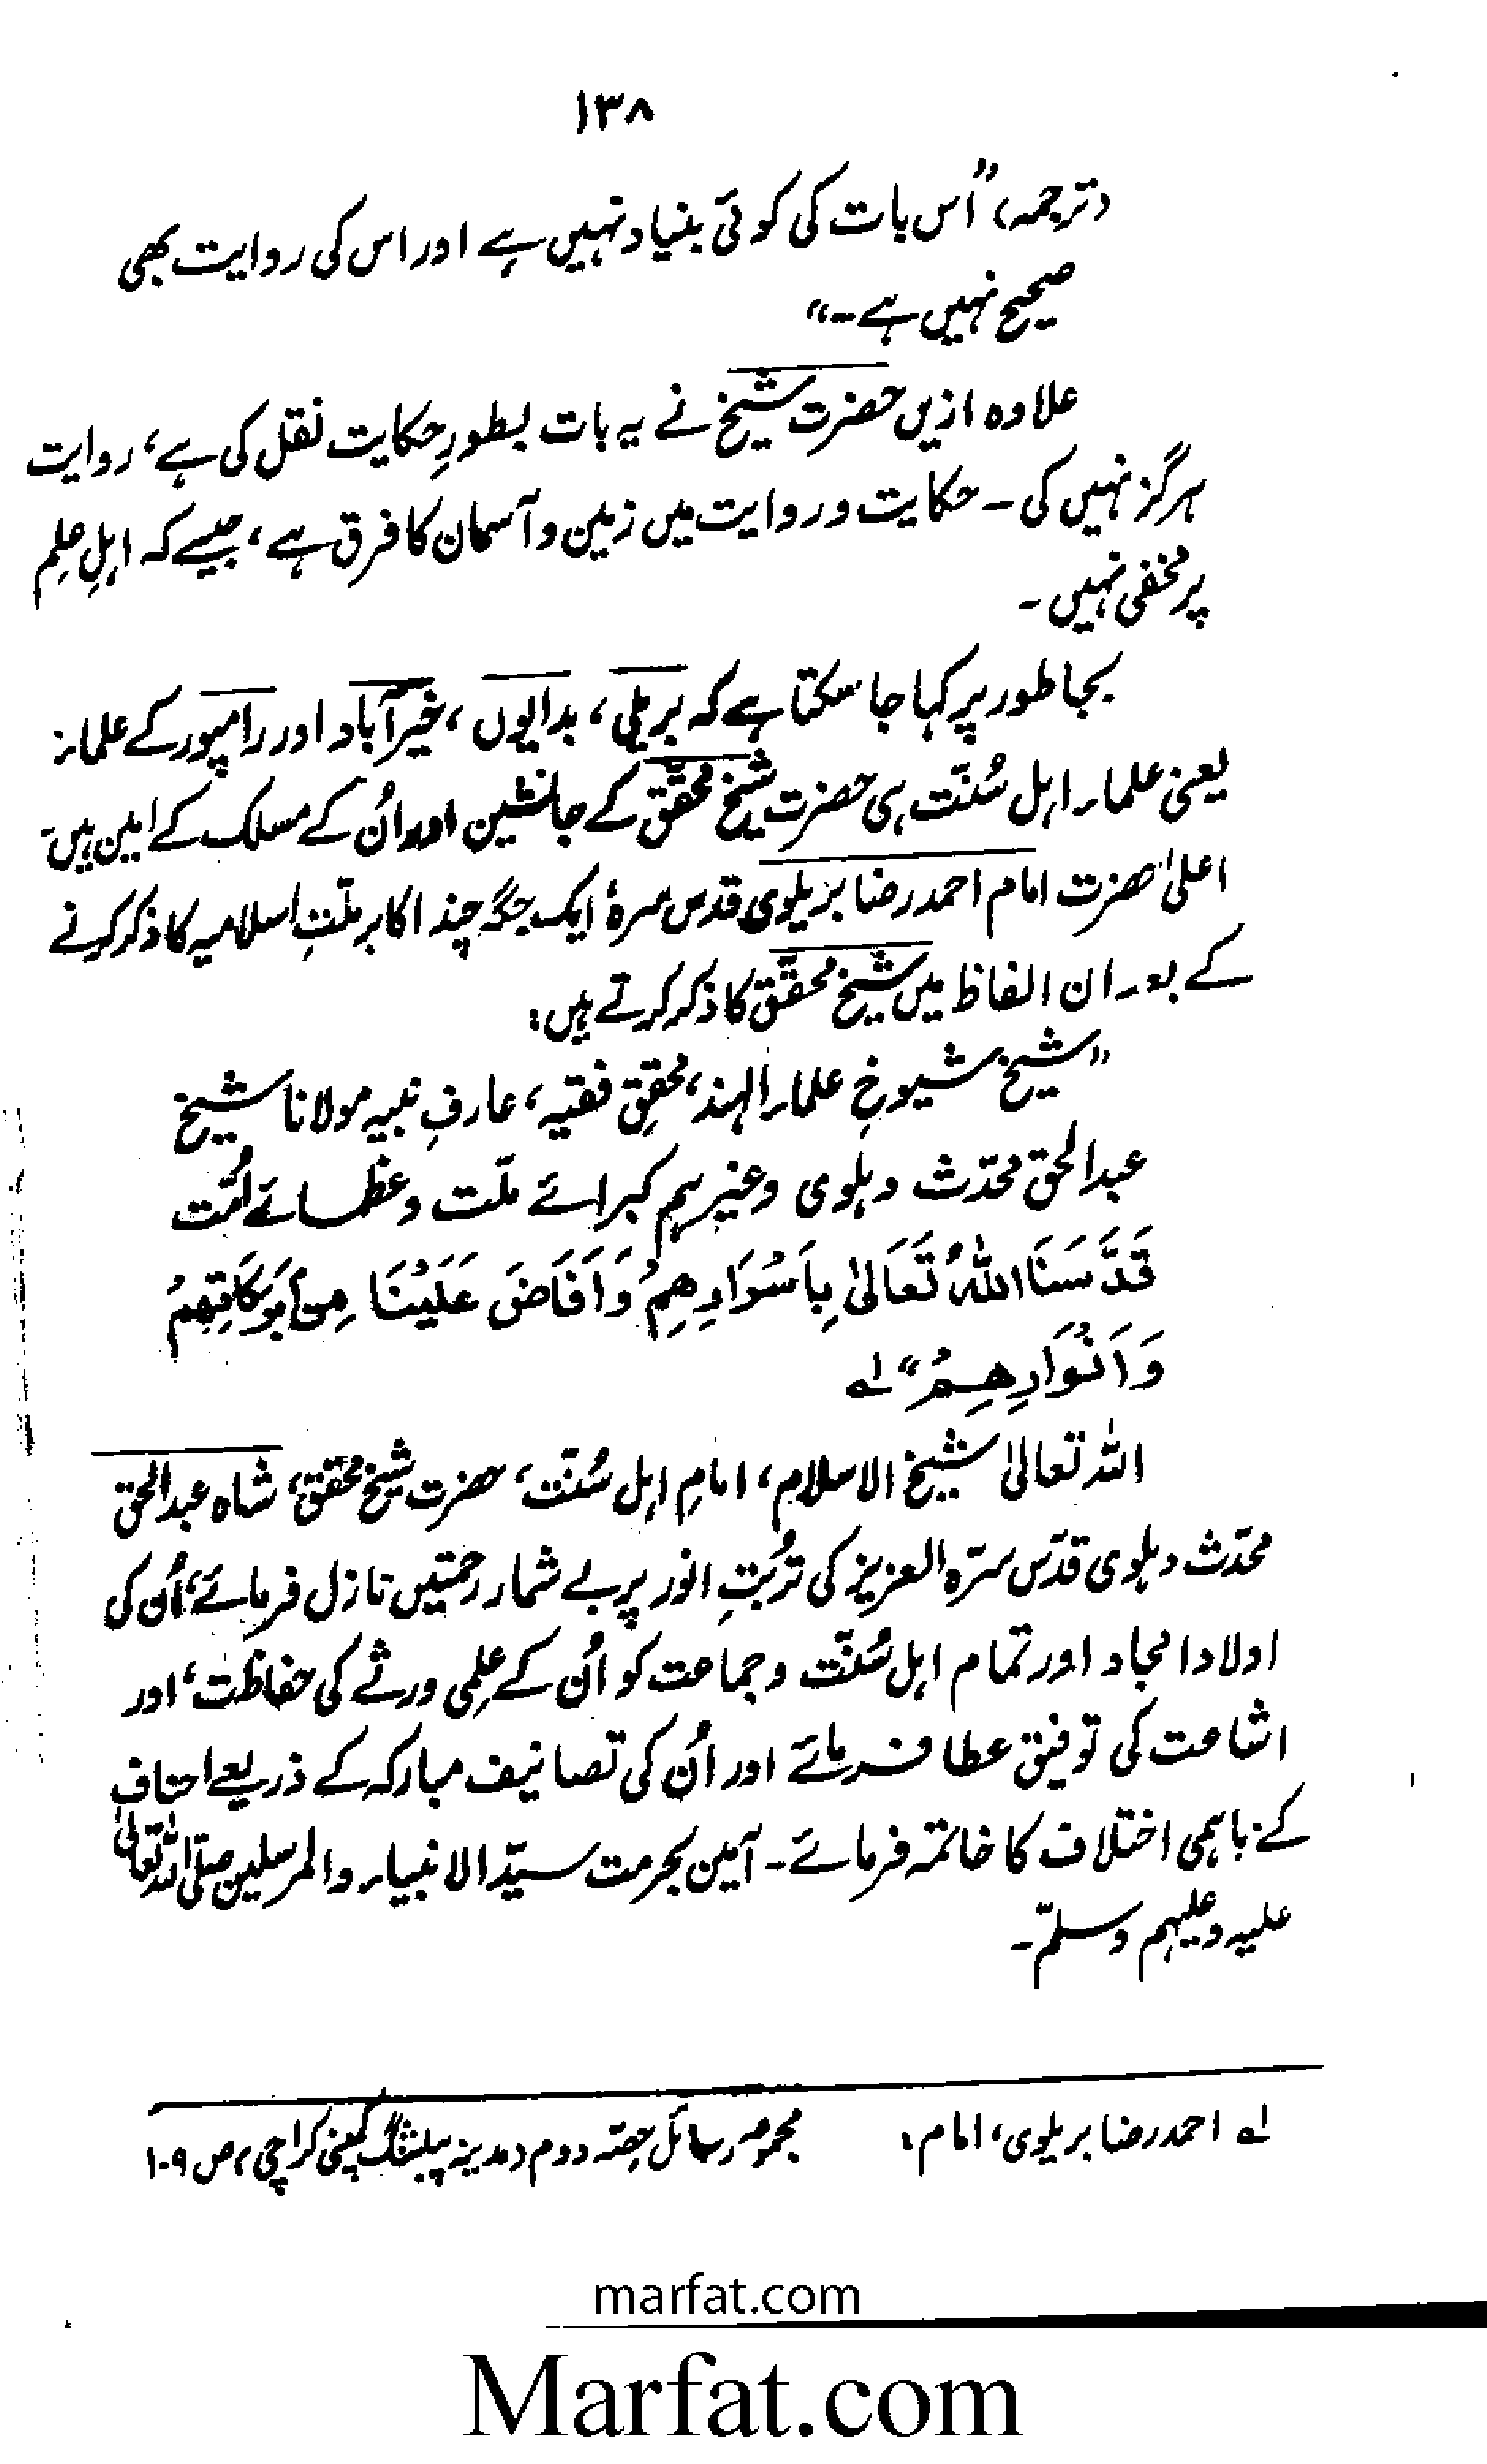 ۱۳۸
(ترجمہ) "اُس بات کی کوئی بنیاد نہیں ہے اور اس کی روایت بھی
صحیح نہیں ہے۔"
علاوہ ازیں حضرت شیخ نے یہ بات بطورِ حکایت نقل کی ہے، روایت
ہرگز نہیں کی۔ حکایت و روایت میں زمین و آسمان کا فرق ہے، جیسے کہ اہلِ علم
پر مخفی نہیں۔
بجا طور پر کہا جا سکتا ہے کہ بریلی، بدایوں، خیرآباد اور رامپور کے علماء
یعنی علماء اہل سُنّت ہی حضرت شیخ محقّق کے جانشین اور اُن کے مسلک کے امین ہیں۔
اعلیٰحضرت امام احمد رضا بریلوی قدس سرہٗ ایک جگہ چند اکابر ملّتِ اسلامیہ کا ذکر کرنے
کے بعد ان الفاظ میں شیخ محقّق کا ذکر کرتے ہیں:
"شیخ شیوخِ علماء الہند، محقِق فقیہ، عارفِ نبیہ مولانا شیخ
عبدالحق محدّث دہلوی وغیرہم کبرائے ملّت و عظمائے اُمّت
قَدَّسَنَا اللّٰہُ تَعَالیٰ بِاَسْرَارِھِمْ وَاَفَاضَ عَلَیْنَا مِنْ بَرَکَاتِھِمْ
وَاَنْوَارِھِمْ" لے
اللہ تعالیٰ شیخ الاسلام، امامِ اہل سُنّت، حضرت شیخ محقق، شاہ عبدالحق
محدّث دہلوی قدّس سرّہ العزیز کی تُربتِ انور پر بے شمار رحمتیں نازل فرمائے، اُن کی
اولاد امجاد اور تمام اہل سُنّت و جماعت کو اُن کے عِلمی ورثے کی حفاظت، اور
اشاعت کی توفیق عطا فرمائے اور اُن کی تصانیف مبارکہ کے ذریعے احناف
کے باہمی اختلاف کا خاتمہ فرمائے۔ آمین بحرمت سیّد الانبیاء والمرسلین صلی اللہ تعالیٰ
علیہ وعلیہم وسلّم۔
لے احمد رضا بریلوی، امام: مجموعہ رسائل حصّہ دوم (مدینہ پبلشنگ کمپنی کراچی) ص ۱۰۹
marfat.com
Marfat.com